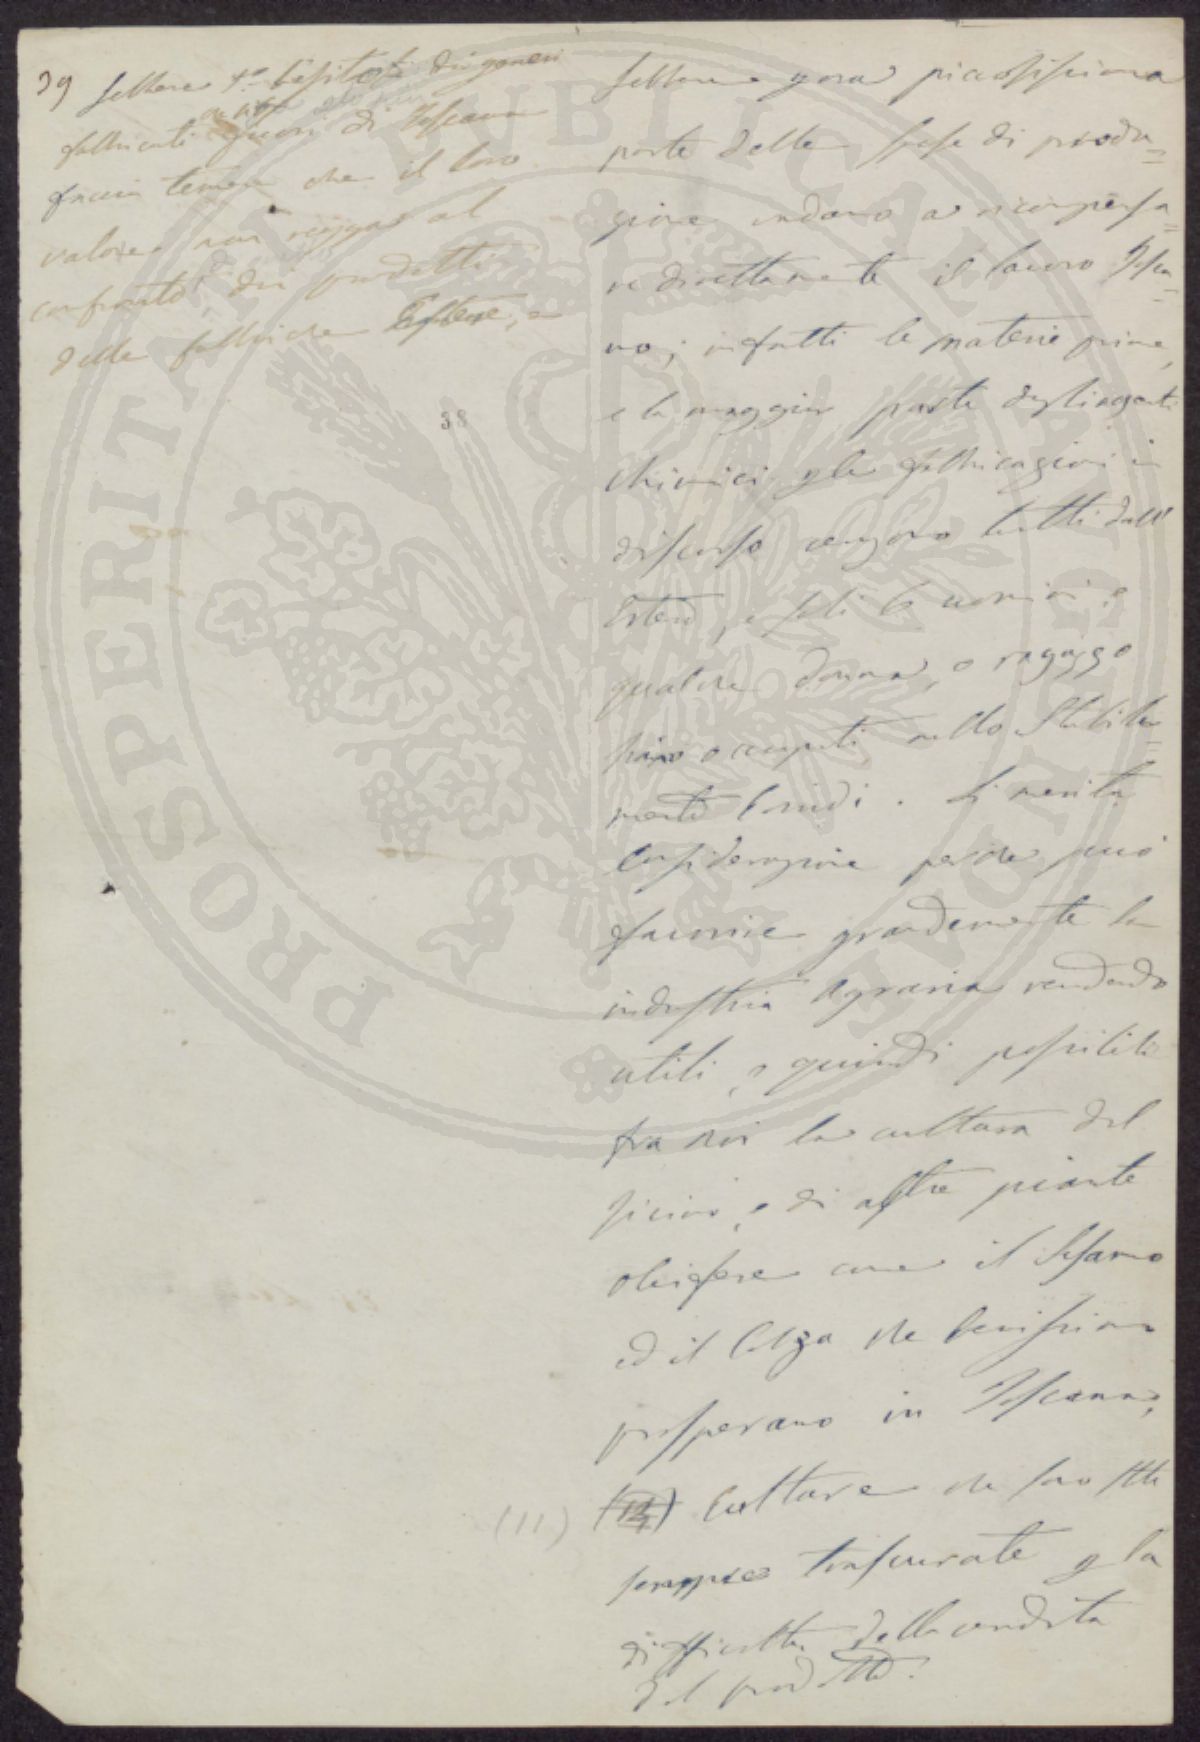 39 sebbene
fabbricati fuori di Toscana
faccia temere che il loro
valore non regga al
confronto dei prodotti
delle fabbriche Estere, e
38
sebbene ora piccolissima
parte delle spese di produ=
zione vadano a ricompensa=
re direttamente il lavoro Tosca=
no; infatti le materie prime,
e la maggior parte degli agenti
chimici le fabbricazioni in
discorso vengono tutti dall'
Estero, e soli uomini e
qualche donna, o ragazzo
siano occupati nello Stabili=
mento . Si merita
Considerazione perché può
favorire grandemente la
industria Agraria rendendo
utili, e quindi possibili
fra noi la cultura del
ricino, e di altre piante
oleifere come il Sesamo
ed il Colza che benissimo
prosperano in Toscana,
(11) Culture che sono state
sempre trascurate la
difficoltà della vendita
del prodotto.
PROSPERITATI PUBLICAE AUGENDAE